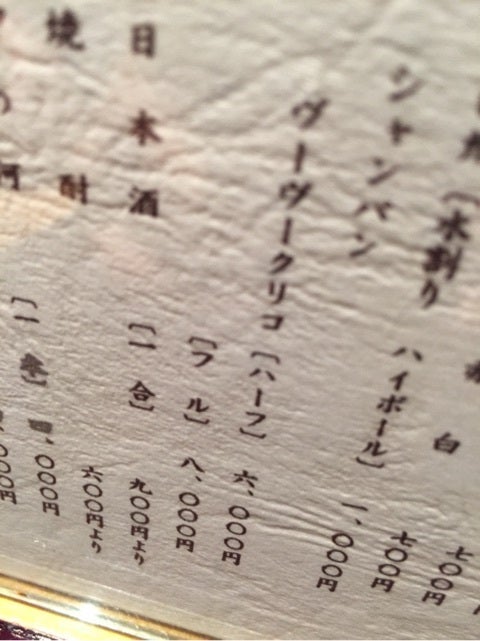 白 七〇〇円
〔水割り ハイボール〕 七〇〇円
シャンパン 一、〇〇〇円
ヴーヴークリコ〔ハーフ〕 六、〇〇〇円
〔フル〕 八、〇〇〇円
日本酒 〔一合〕 九〇〇円より
焼酎 六〇〇円より
〇〇〇円